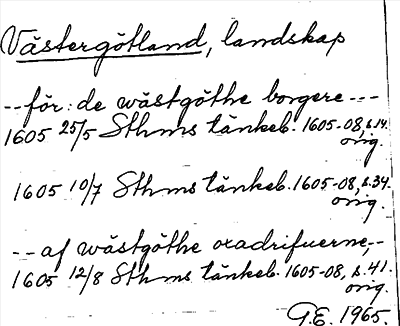 Västergötland, landskap
--för: de wästgöthe borgere---
1605 25/5 Sthms tänkeb. 1605-08, s.14.
orig.
1605 10/7 Sthms tänkeb. 1605-08, s.34.
orig.
--af wästgöthe oxadrifuerne,--
1605 12/8 Sthms tänkeb. 1605-08, s.41.
orig.
G.E. 1965.